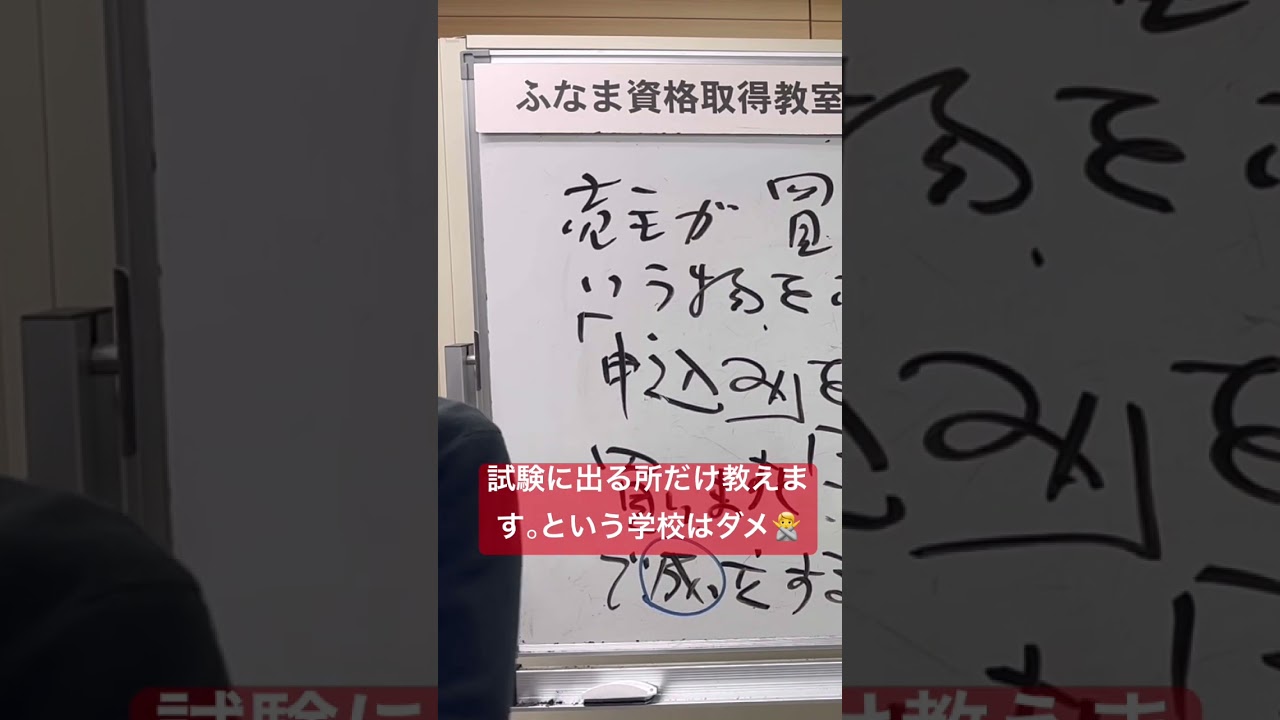 ふなま資格取得教室
売主が 買
いう物をお
「申込み」を
買
試験に出る所だけ教えま
す。という学校はダメ🙅
で成立する